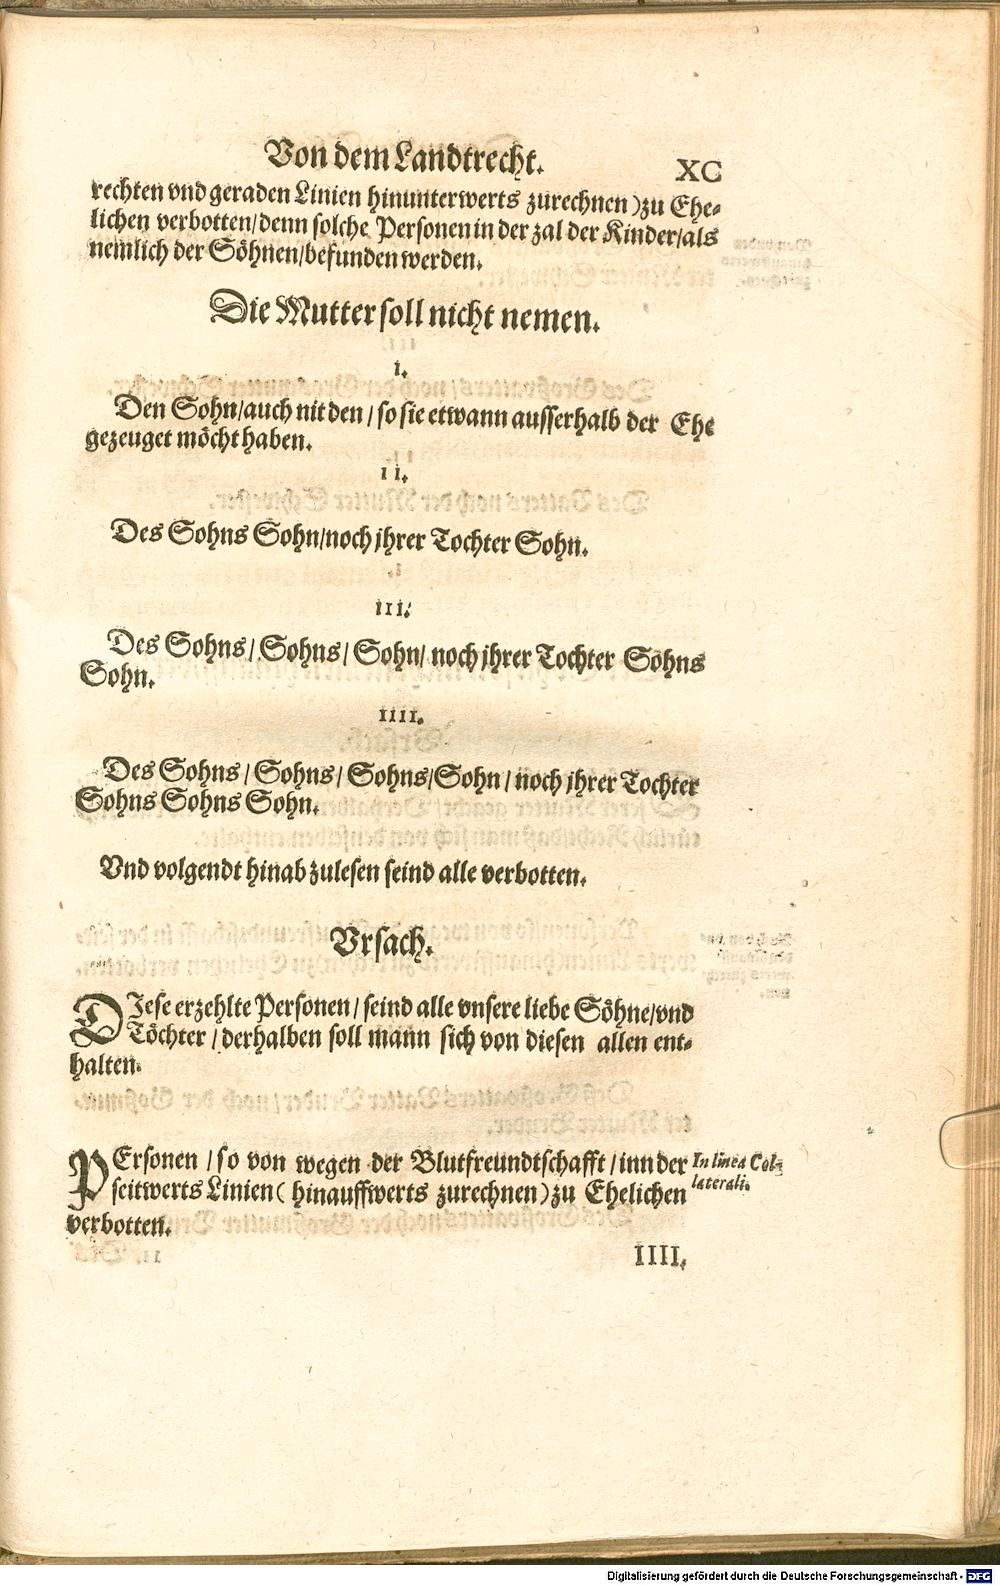 Von dem Landtrecht. XC
rechten vnd geraden Linien hinunterwerts zurechnen) zu Ehe-
lichen verbotten/denn solche Personen in der zal der Kinder/als
nemlich der Söhnen/befunden werden.
Die Mutter soll nicht nemen.
I.
Den Sohn/auch nit den/so sie etwann ausserhalb der Ehe
gezeuget möcht haben.
II.
Des Sohns Sohn/noch jhrer Tochter Sohn.
III.
Des Sohns/Sohns/Sohn/noch jhrer Tochter Sohns
Sohn.
IIII.
Des Sohns/Sohns/Sohns/Sohn/noch jhrer Tochter
Sohns Sohns Sohn.
Vnd volgendt hinab zulesen seind alle verbotten.
Vrsach.
DIese erzehlte Personen/seind alle vnsere liebe Söhne/vnd
Töchter/derhalben soll mann sich von diesen allen ent-
halten.
PErsonen/so von wegen der Blutfreundtschafft/inn der
seitwerts Linien (hinauffwerts zurechnen) zu Ehelichen
verbotten.
In linea Col-
laterali.
IIII.
Digitalisierung gefördert durch die Deutsche Forschungsgemeinschaft - DFG